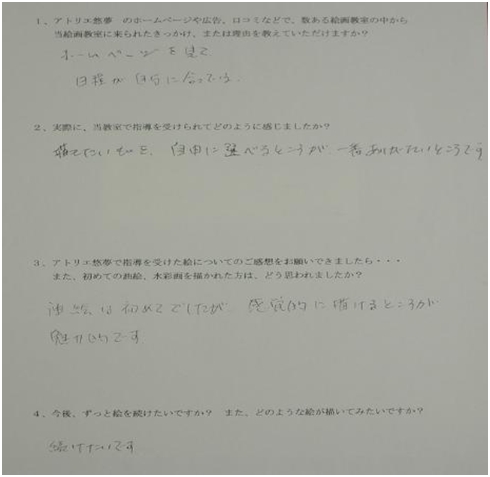 １、アトリエ悠夢　のホームページや広告、口コミなどで、数ある絵画教室の中から
当絵画教室に来られたきっかけ、または理由を教えていただけますか？
ホームページを見て
日程が自分に合っている。
２、実際に、当教室で指導を受けられてどのように感じましたか？
描きたいものを、自由に選べるところが、一番ありがたいところです
３、アトリエ悠夢で指導を受けた絵についてのご感想をお願いできましたら・・・
また、初めての油絵、水彩画を描かれた方は、どう思われましたか？
油絵は初めてでしたが、感覚的に描けるところが
魅力的です。
４、今後、ずっと絵を続けたいですか？　また、どのような絵が描いてみたいですか？
続けたいです